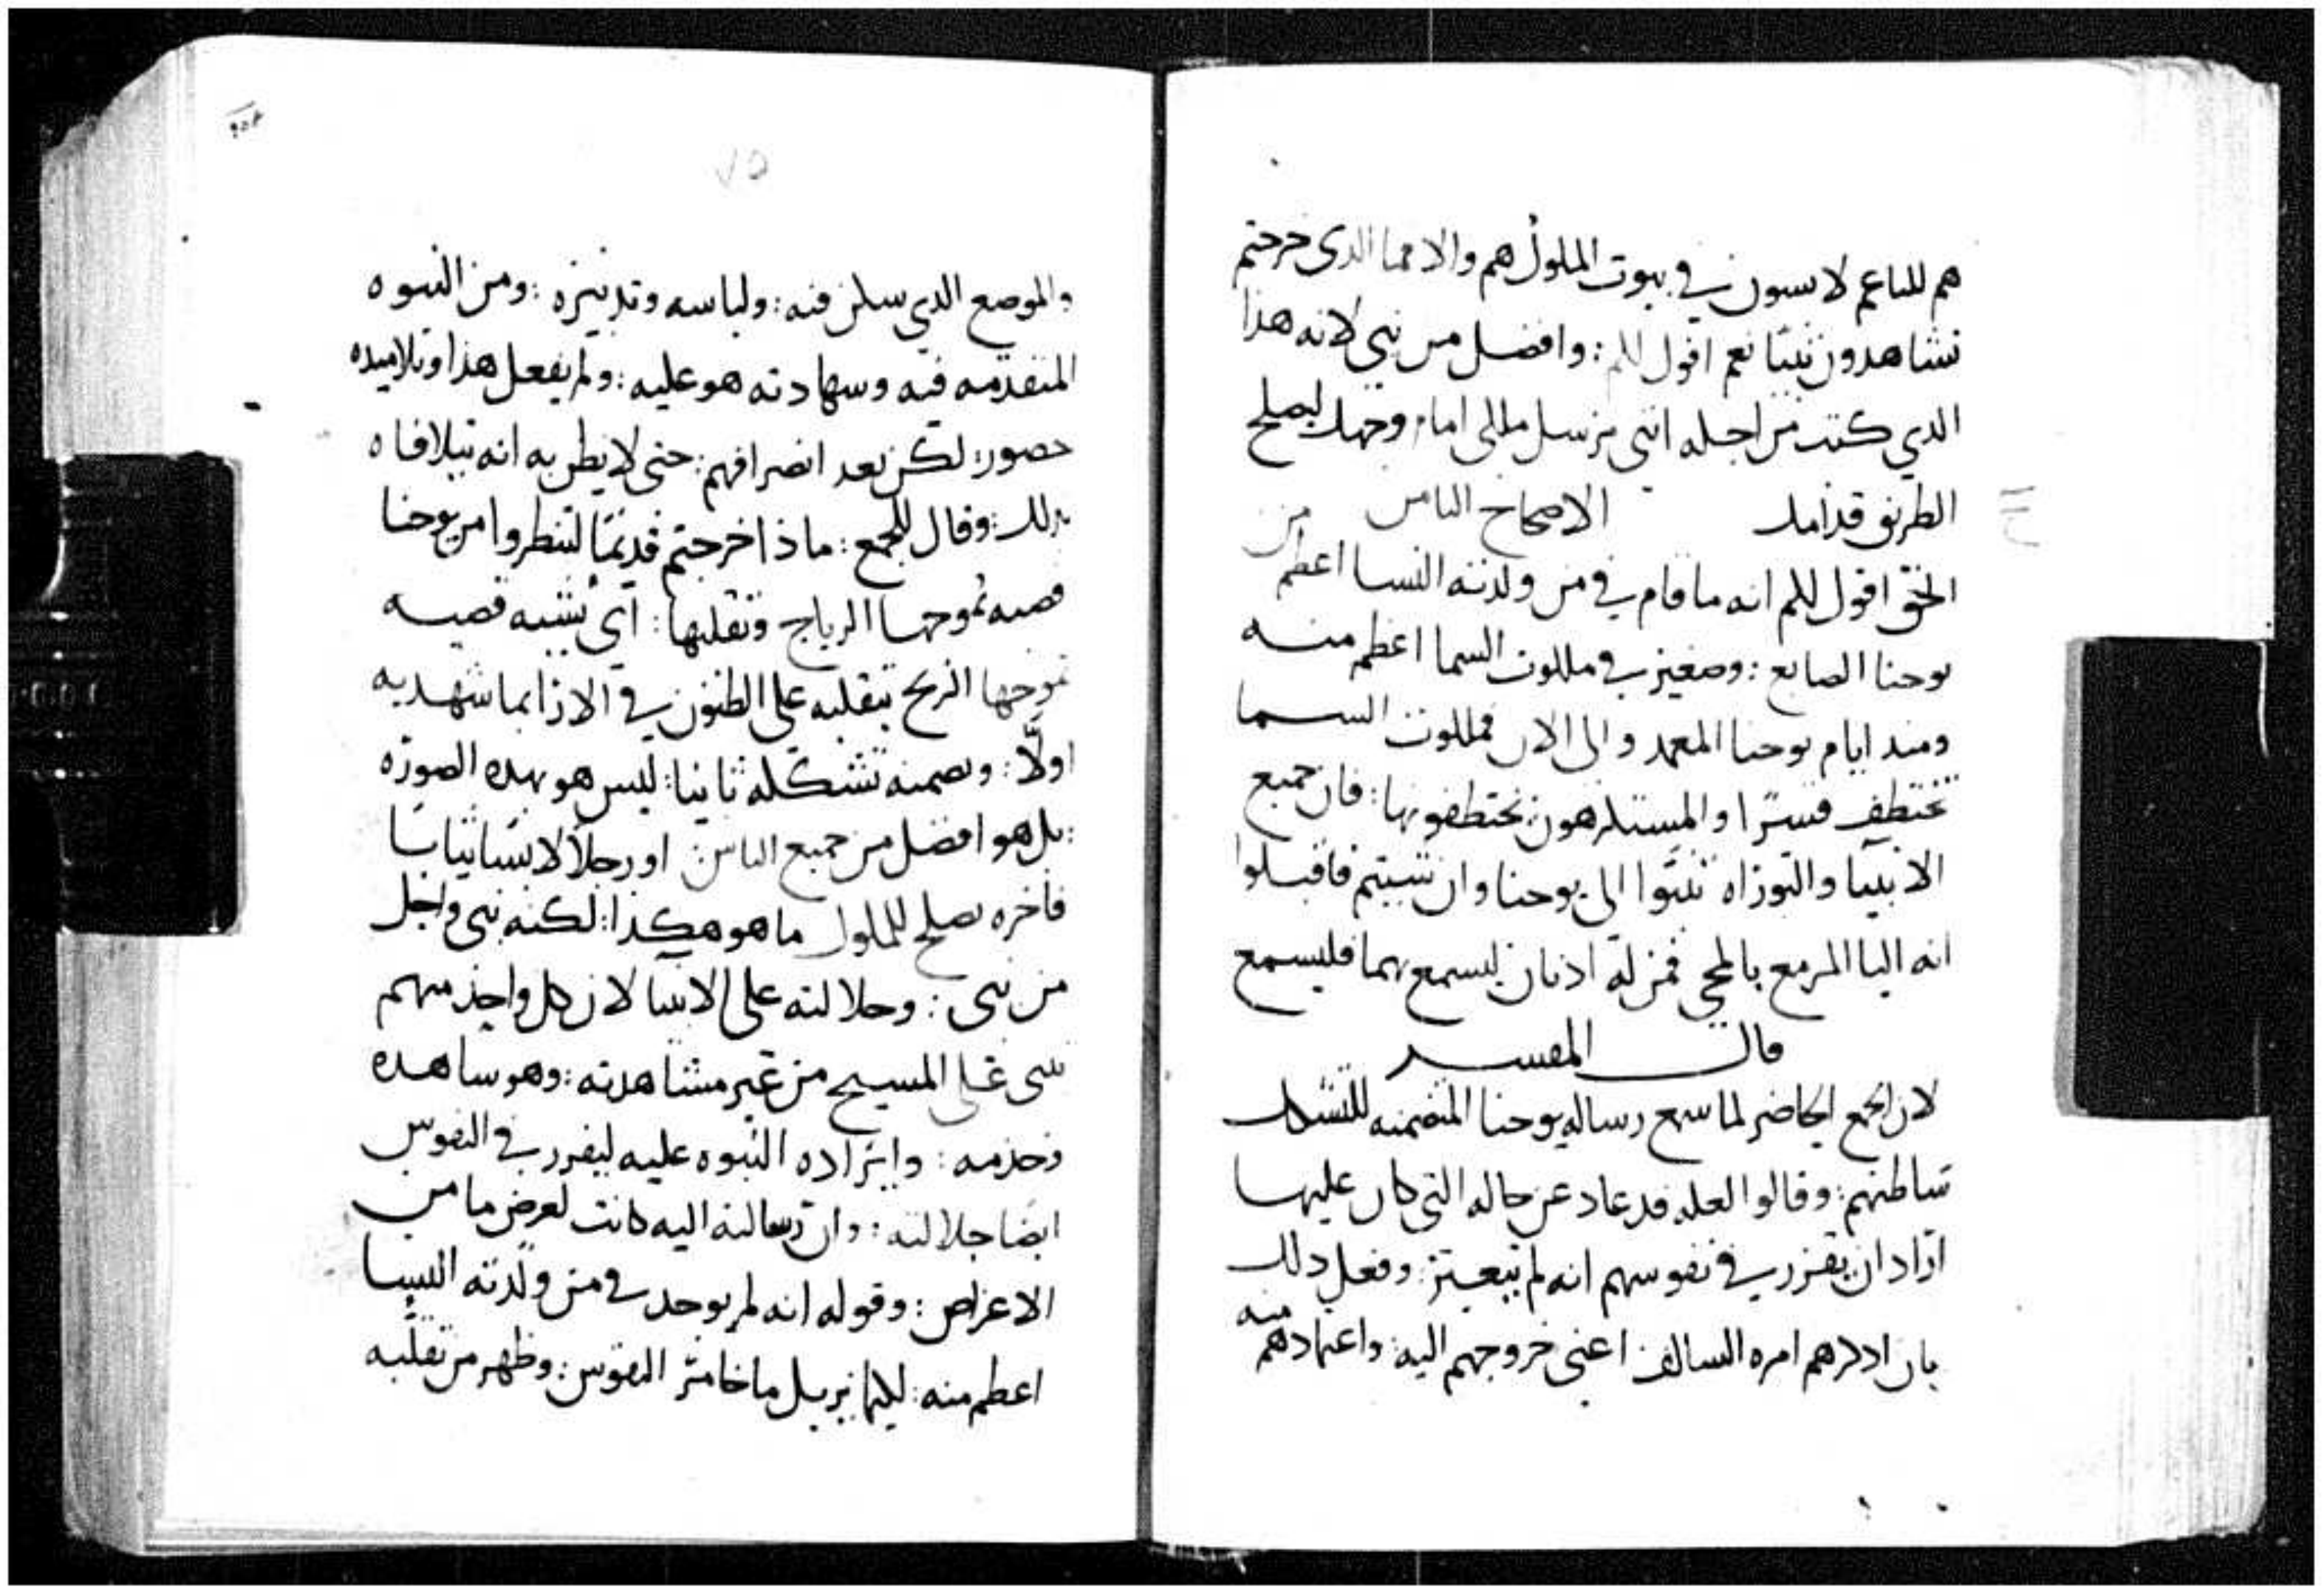 هم للناعم لابسون في بيوت الملوك هم والا فما الذى خرجتم
تشاهدون نبيًا نعم اقول لكم : وافضل من نبى لانه هذا
الدي كتب من اجله انني مرسل ملاكى امام وجهك ليصلح
الطريق قدامك الاصحاح الثامن من
الحق اقول لكم انه ما قام في من ولدته النسا اعظم
يوحنا الصابع : وصغير في ملكوت السما اعظم منه
ومند ايام يوحنا المعمد والى الان فملكوت السما
تختطف قسرًا والمستكرهون يختطفونها : فان جميع
الانبيا والتوراه تنبوا الى يوحنا وان شيتم فاقبلوا
انه اليا المزمع بالمجى فمن له ادنان ليسمع بهما فليسمع
قال المفسر
لان الجمع الحاضر لما سمع رساله يوحنا المتضمنه للتشكك
تباطنهم : وقالوا لعله قد عاد عن حاله التي كان عليها
اراد ان يقرر في نفوسهم انه لم يتغير : وفعل دلك
بان ادكرهم امره السالف اعني خروجهم اليه : واعتمادهم منه
٧٥
والموضع الدي سكن فيه : ولباسه وتدبيره : ومن النبوه
المتقدمه فيه وسهادته هو عليه : ولم يفعل هذا وتلاميده
حضور : لكن بعد انصرافهم : حتى لا يظن به انه يتلافاه
بدلك : وقال للجمع : ماذا خرجتم قديمًا لتنظروا امر يوحنا
قصبه تموجها الرياح وتقلبها : اى يشبه قصبه
تموجها الريح بتقلبه على الظنون في الارا بما شهد به
اولًا : وبضمنه تشككه ثانيا : ليس هو بهده الصوره
: بل هو افضل من جميع الناس : او رجلًا لابسًا ثيابًا
فاخره يصلح للملوك ما هو هكدا : لكنه نبى واجل
من نبى : وجلالته على الانبيا لان كل واحد منهم
تنبى على المسيح من غير مشاهدته : وهو ساهده
وخدمه : وايراده النبوه عليه ليقرر في النفوس
ايضا جلالته : وان رسالته اليه كانت لغرض ما من
الاغراض : وقوله انه لم يوجد في من ولدته النسا
اعظم منه : لكيما يزيل ما خامر النفوس : وظهر من تقلبه